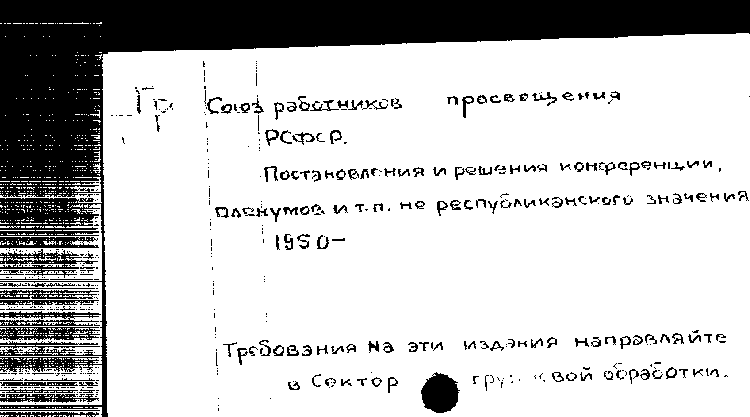 Гр. Союз работников просвещения
РСФСР.
Постановления и решения конференции,
пленумов и т.п. не республиканского значения
1950-
Требования на эти издания направляйте
в Сектор групповой обработки.